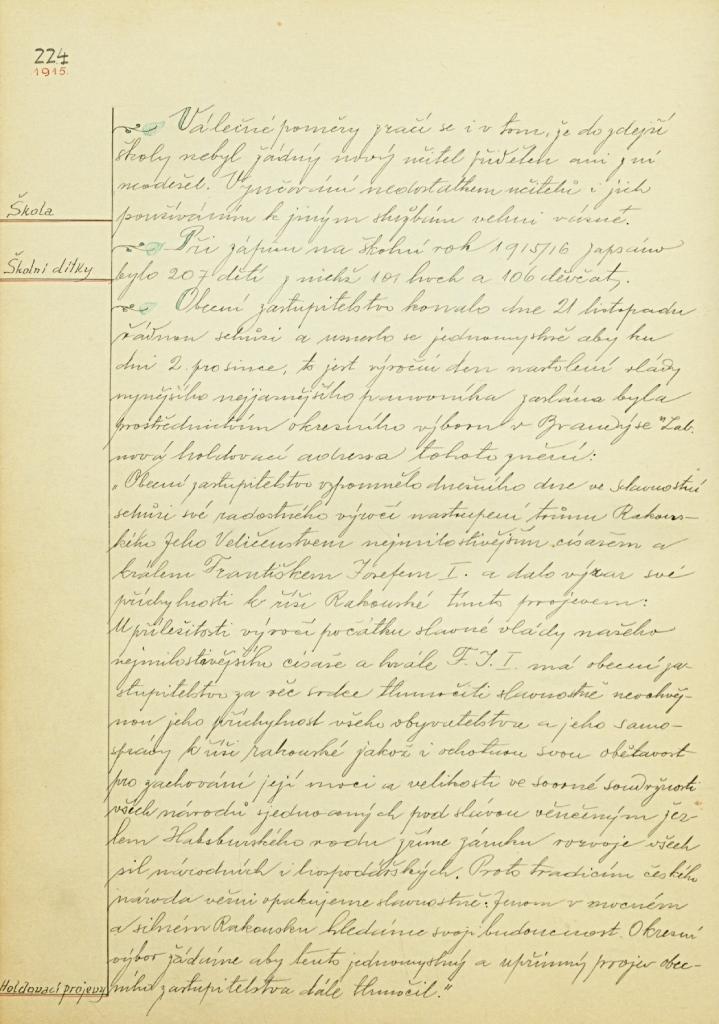 224
1915.
Válečné poměry zračí se i v tom, že do zdejší
školy nebyl žádný nový učitel přidělen ani z ní
neodešel. Vyučování nedostatkem učitelů i jich
Škola
používáním k jiným službám velmi vázne.
Při zápisu na školní rok 1915/16 zapsáno
Školní dítky
bylo 207 dětí z nichž 101 hoch a 106 děvčat.
Obecní zastupitelstvo konalo dne 21 listopadu
řádnou schůzi a usneslo se jednomyslně aby ku
dni 2. prosince, to jest výroční den nastolení vlády
nynějšího nejjasnějšího panovníka zaslána byla
prostřednictvím okresního výboru v Brandýse "Lab.
nová holdovací adressa tohoto znění:
„Obecní zastupitelstvo vzpomnělo dnešního dne ve slavnostní
schůzi své radostného výročí nastoupení trůnu Rakous-
kého Jeho Veličenstvem nejmilostivějším císařem a
králem Františkem Josefem I. a dalo výraz své
příchylnosti k říši Rakouské tímto projevem:
U příležitosti výročí počátku slavné vlády našeho
nejmilostivějšího císaře a krále F. J. I. má obecní za-
stupitelstvo za věc srdce tlumočiti slavnostně neochvěj-
nou jeho příchylnost všeho obyvatelstva a jeho samo-
správy k říši rakouské jakož i ochotnou svou obětavost
pro zachování její moci a velikosti ve svorné soudržnosti
všech národů sjednocených pod slávou věnčeným žez-
lem Habsburského rodu zříme záruku rozvoje všech
sil národních i hospodářských. Proto tradicím českého
národa věrni opakujeme slavnostně: Jenom v mocném
a silném Rakousku hledáme svoji budoucnost. Okresní
výbor žádáme aby tento jednomyslný a upřímný projev obec-
Holdovací projevy
ního zastupitelstva dále tlumočil."